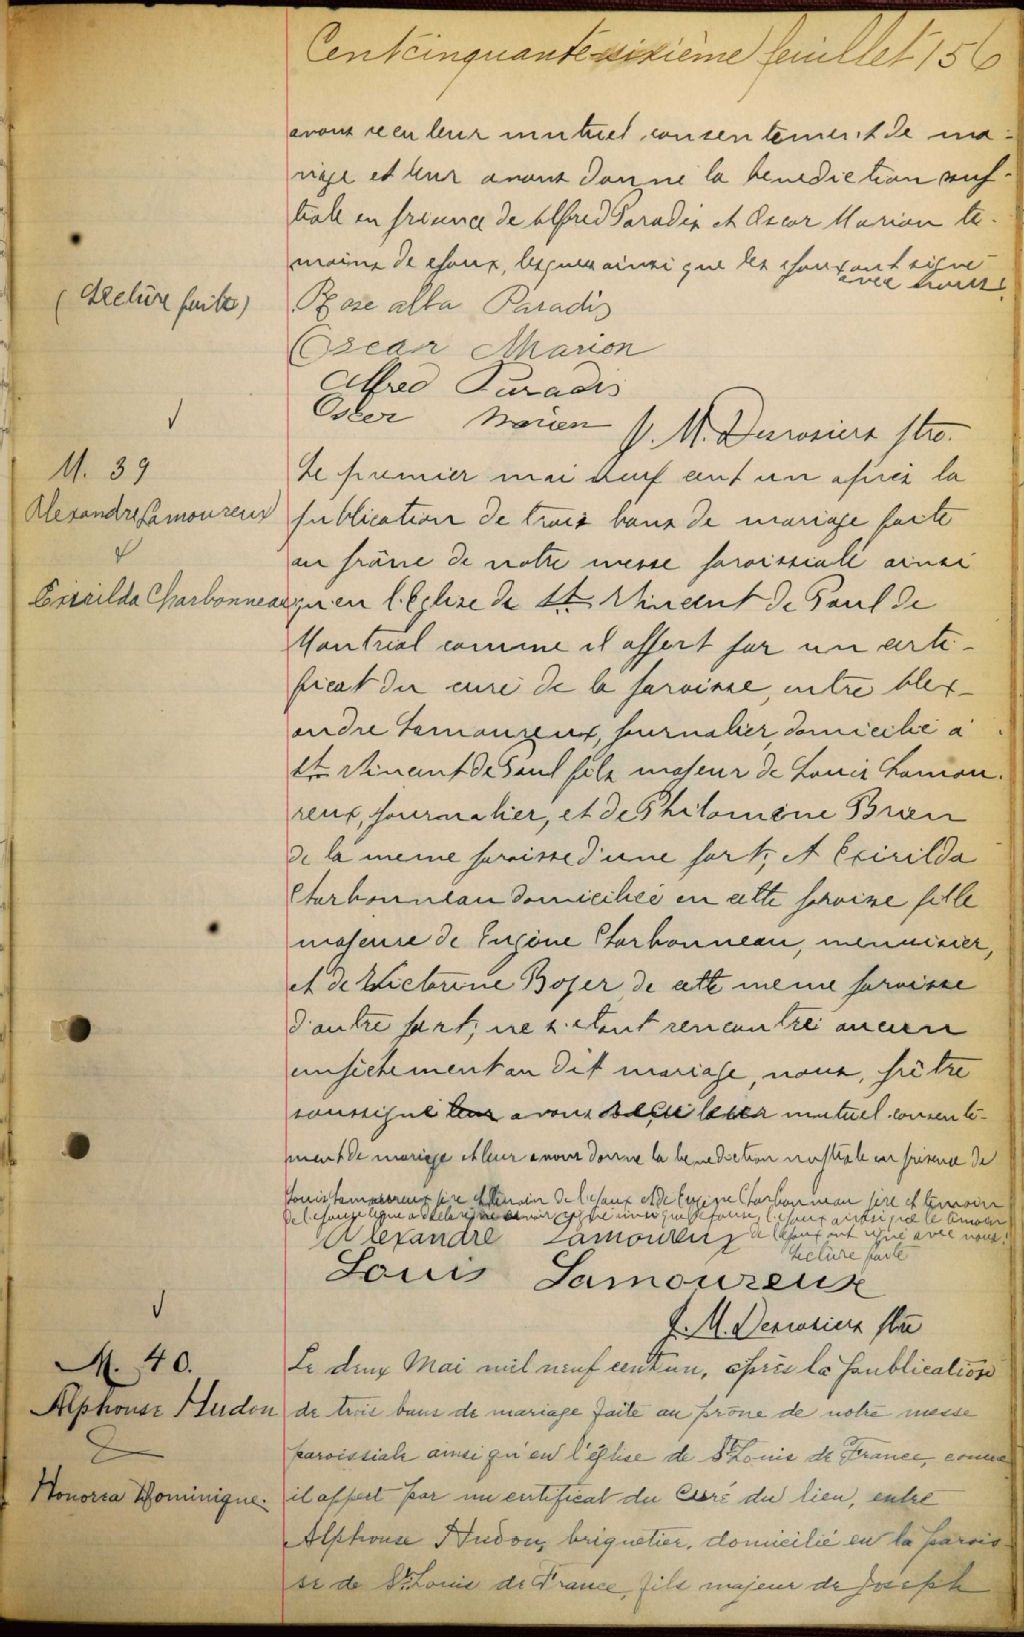 Centcinquante-sixième feuillet 156
avons reçu leur mutuel consentement de ma-
riage et leur avons donné la benediction nup-
tiale en présence de Alfred Paradis et Oscar Marion té-
moins de epoux, lesquels ainsi que les epoux ont signé
avec nous.
(Lecture faite)
Rose alba Paradis
Oscar Marion
Alfred Paradis
Oscar Marion
J. M. Desrosiers Ptre.
M. 39
Alexandre Lamoureux
&
Exirilda Charbonneau
Le premier mai neuf cent un après la
publication de trois bans de mariage faite
au prône de notre messe paroissiale ainsi
qu'en l'Eglise de St Vincent de Paul de
Montréal comme il appert par un certi-
ficat du curé de la paroisse, entre Alex-
andre Lamoureux, journalier, domicilié à
St Vincent de Paul fils majeur de Louis Lamou-
reux, journalier, et de Philomène Brien
de la meme paroisse d'une part; et Exirilda
Charbonneau domiciliée en cette paroisse fille
majeure de Eugène Charbonneau, menuisier,
et de Victorine Boyer de cette meme paroisse
d'autre part; ne s'étant rencontré aucun
empêchement au dit mariage, nous, prêtre
soussigné leur avons reçu leur mutuel consente-
ment de mariage et leur avons donné la benediction nuptiale en présence de
Louis Lamoureux père et témoin de l'epoux et de Eugène Charbonneau père et temoin
de l'epouse lequel a déclaré ne savoir signer ainsi que l'epouse, l'epoux ainsi que le témoin
de l'epoux ont signé avec nous.
Lecture faite
Alexandre Lamoureux
Louis Lamoureux
J. M. Desrosiers Ptre
M. 40.
Alphonse Hudon
&
Honorea Dominique.
Le deux Mai mil neuf cent un, après la publication
de trois bans de mariage faite au prône de notre messe
paroissiale ainsi qu'en l'église de St Louis de France, comme
il appert par un certificat du Curé du lieu, entre
Alphonse Hudon, briquetier, domicilié en la parois-
se de St Louis de France, fils majeur de Joseph